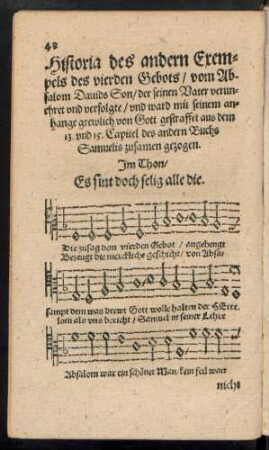 48
Historia des andern Exem-
pels des vierden Gebots / vom Ab-
salom Dauids Son / der seinen Vater verun-
ehret vnd verfolgte / vnd ward mit seinem an-
hange grewlich von Gott gestraffet aus dem
13. vnd 15. Capitel des andern Buchs
Samuelis zusamen gezogen.
Im Thon /
Es sint doch selig alle die.
Die zusag dem vierden Gebot / angehengt
Bezeugt die merckliche geschicht / von Absa,
sampt dem was drewt Gott wolle halten der HErre
lom als vns bericht / Samuel in seiner Lehre
Absalom war ein schöner Man / kein feil wart
nicht